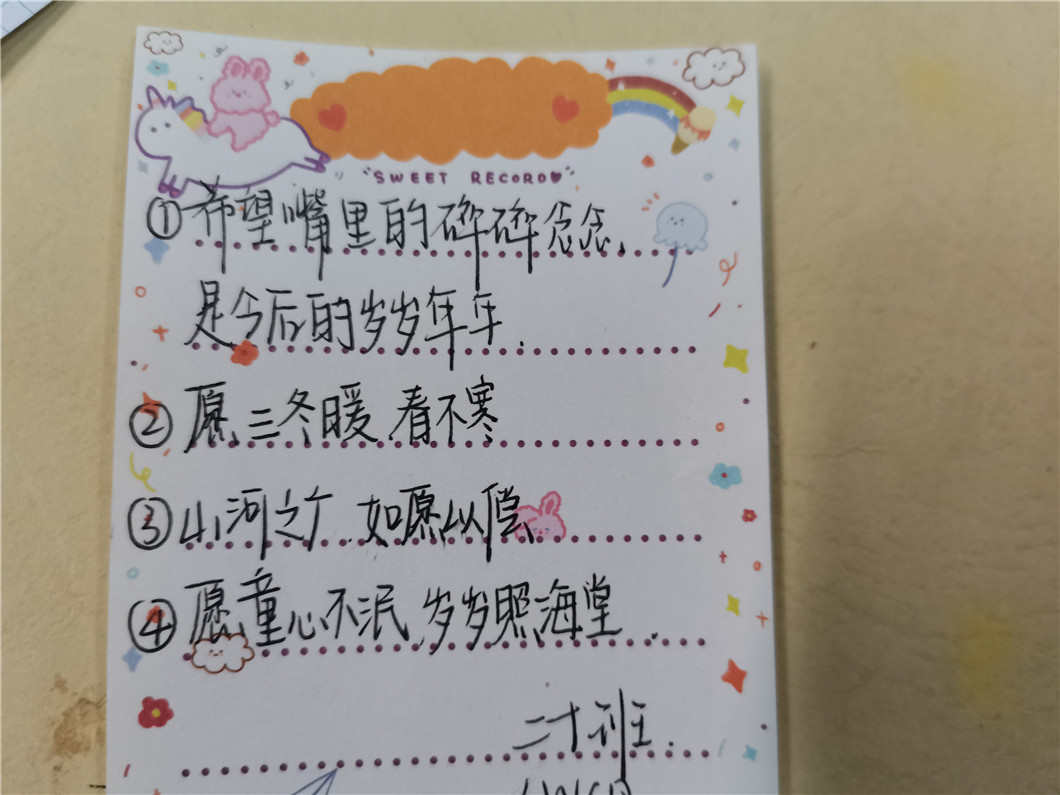 SWEET RECORD
①希望嘴里的碎碎念念,
是今后的岁岁年年.
②愿三冬暖,春不寒
③山河之广,如愿以偿
④愿童心不泯,岁岁照海堂.
二十班.